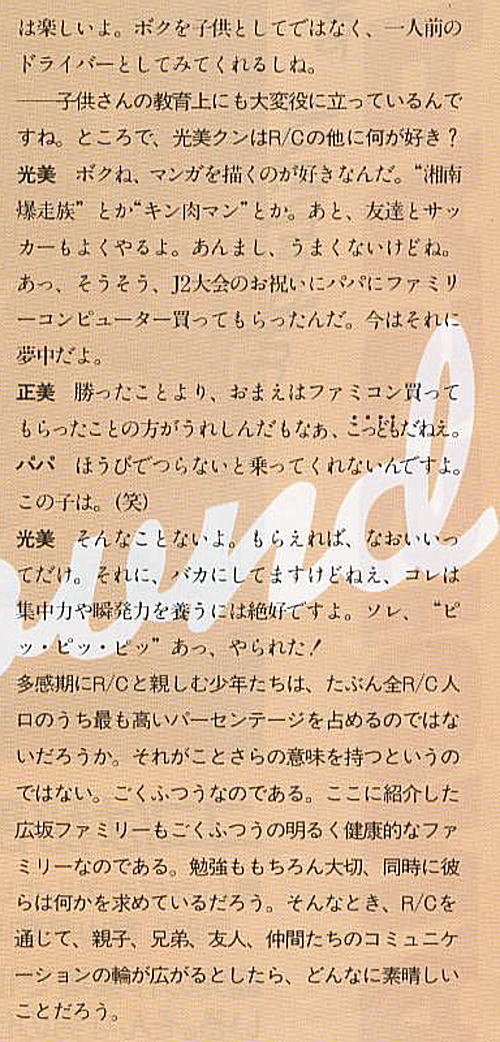 は楽しいよ。ボクを子供としてではなく、一人前の
ドライバーとしてみてくれるしね。
――子供さんの教育上にも大変役に立っているんで
すね。ところで、光美クンはR/Cの他に何が好き？
光美　ボクね、マンガを描くのが好きなんだ。“湘南
爆走族”とか“キン肉マン”とか。あと、友達とサッ
カーもよくやるよ。あんまし、うまくないけどね。
あっ、そうそう、J2大会のお祝いにパパにファミリ
ーコンピューター買ってもらったんだ。今はそれに
夢中だよ。
正美　勝ったことより、おまえはファミコン買って
もらったことの方がうれしんだもなぁ、こっどもだねえ。
パパ　ほうびでつらないと乗ってくれないんですよ。
この子は。(笑)
光美　そんなことないよ。もらえれば、なおいいっ
てだけ。それに、バカにしてますけどねえ、コレは
集中力や瞬発力を養うには絶好ですよ。ソレ、“ピ
ッ・ピッ・ピッ”あっ、やられた！
多感期にR/Cと親しむ少年たちは、たぶん全R/C人
口のうち最も高いパーセンテージを占めるのではな
いだろうか。それがことさらの意味を持つというの
ではない。ごくふつうなのである。ここに紹介した
広坂ファミリーもごくふつうの明るく健康的なファ
ミリーなのである。勉強ももちろん大切、同時に彼
らは何かを求めているだろう。そんなとき、R/Cを
通じて、親子、兄弟、友人、仲間たちのコミュニケ
ーションの輪が広がるとしたら、どんなに素晴しい
ことだろう。